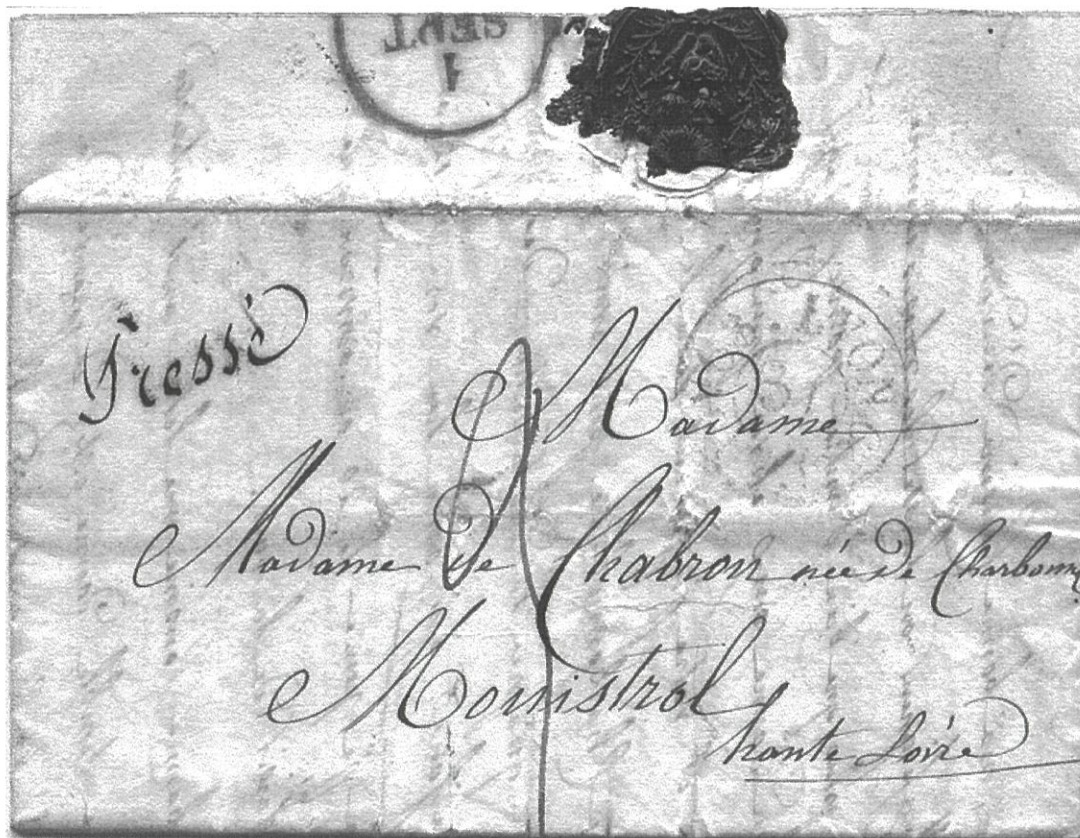 1
SEPT
LYON
Pressé
Madame
Madame de Chabron née de Charbonn
Monistrol
haute Loire